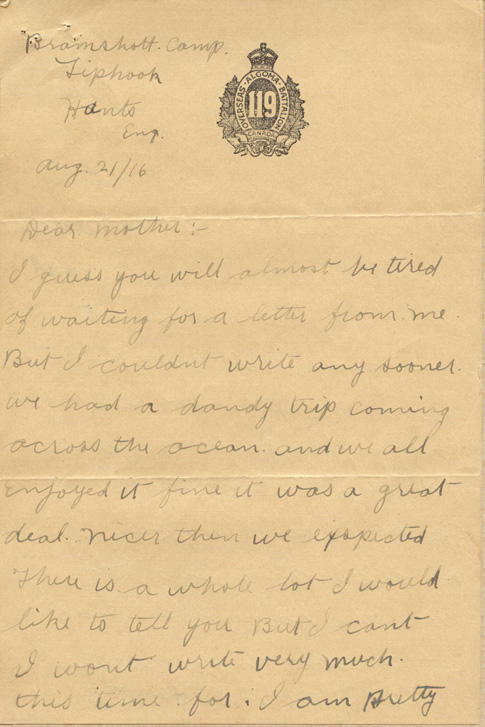 Bramshott. Camp.
Liphook
Hants
Eng.
Aug. 21/16
OVERSEAS · ALGOMA · BATTALION
119
CANADA
Dear Mother:-
I guess you will almost be tired
of waiting for a letter from me.
But I couldnt write any sooner.
we had a dandy trip coming
across the ocean. and we all
enjoyed it fine it was a great
deal. nicer then we exspected
There is a whole lot I would
like to tell you But I cant
I wont write very much.
this time for. I am Pretty